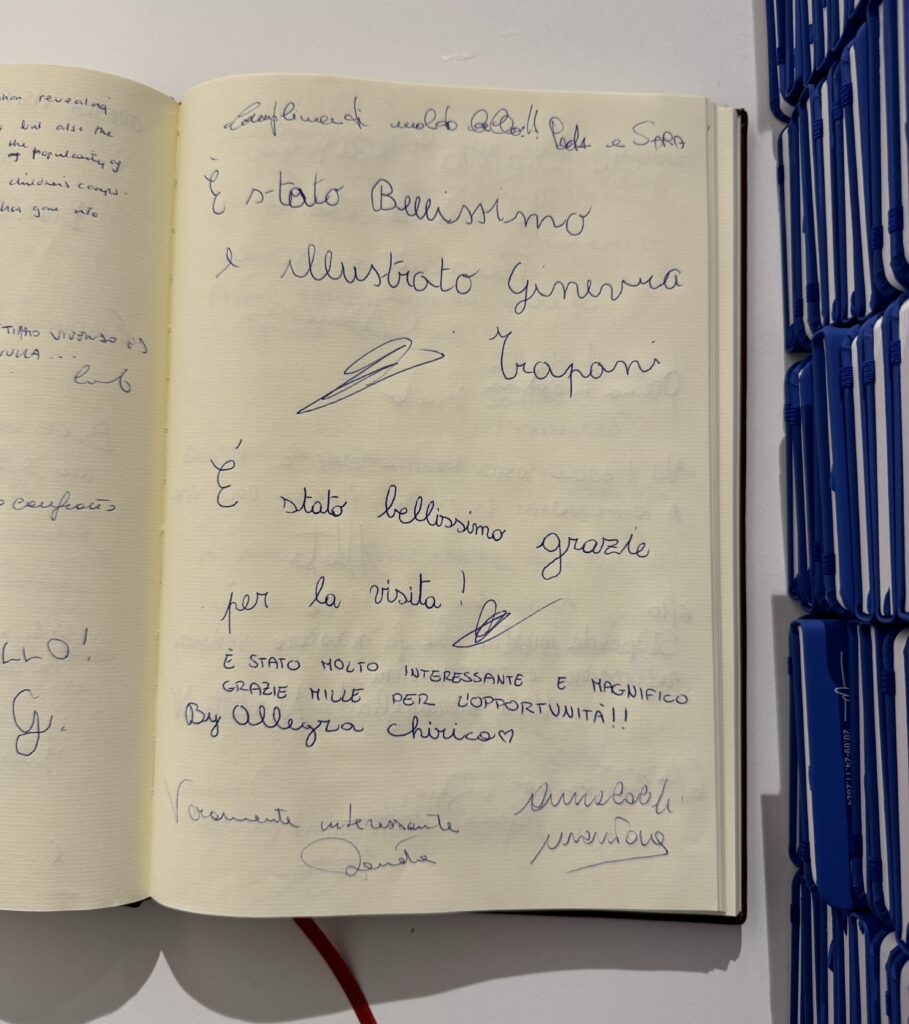 revealing
but also the
the
popularity of
children's
has gone into
VIVENDO
NULLA ...
confronto
LLO!
G.
Complimenti molto bello!! e SARA
È stato Bellissimo
e illustrato Ginevra
Trapani
É stato bellissimo grazie
per la visita!
È STATO MOLTO INTERESSANTE E MAGNIFICO
GRAZIE MILLE PER L'OPPORTUNITÀ!!
By Allegra Chirico♡
Veramente interessante